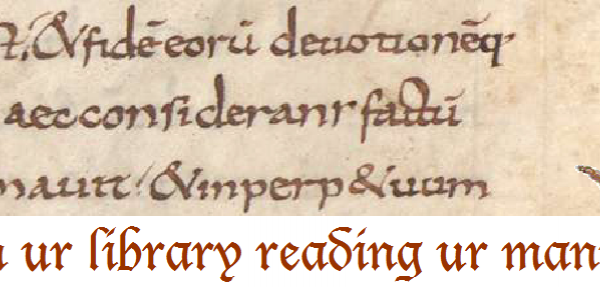 &fidē eorū deuotionēq·
aec considerans factū
nauit &inperp&uum
ur library reading ur man